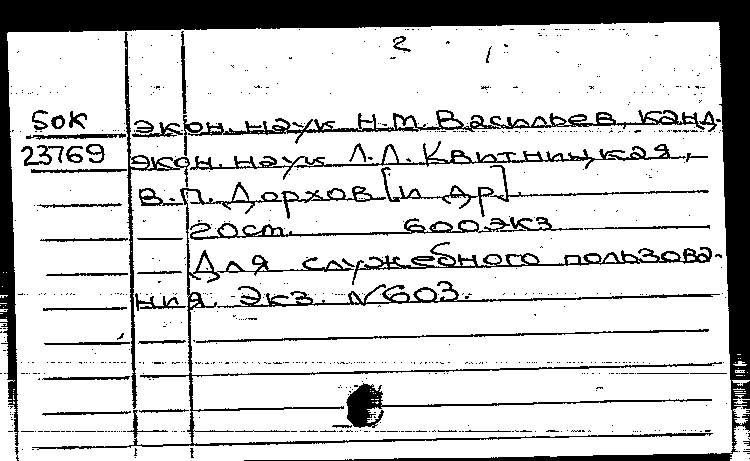 2
Бок экон. наук Н.М. Васильев, канд.
23769 экон. наук Л.Л. Квитницкая,
В.П. Дорхов [и др].
гост. 600экз
Для служебного пользова-
ния. Экз. №603.